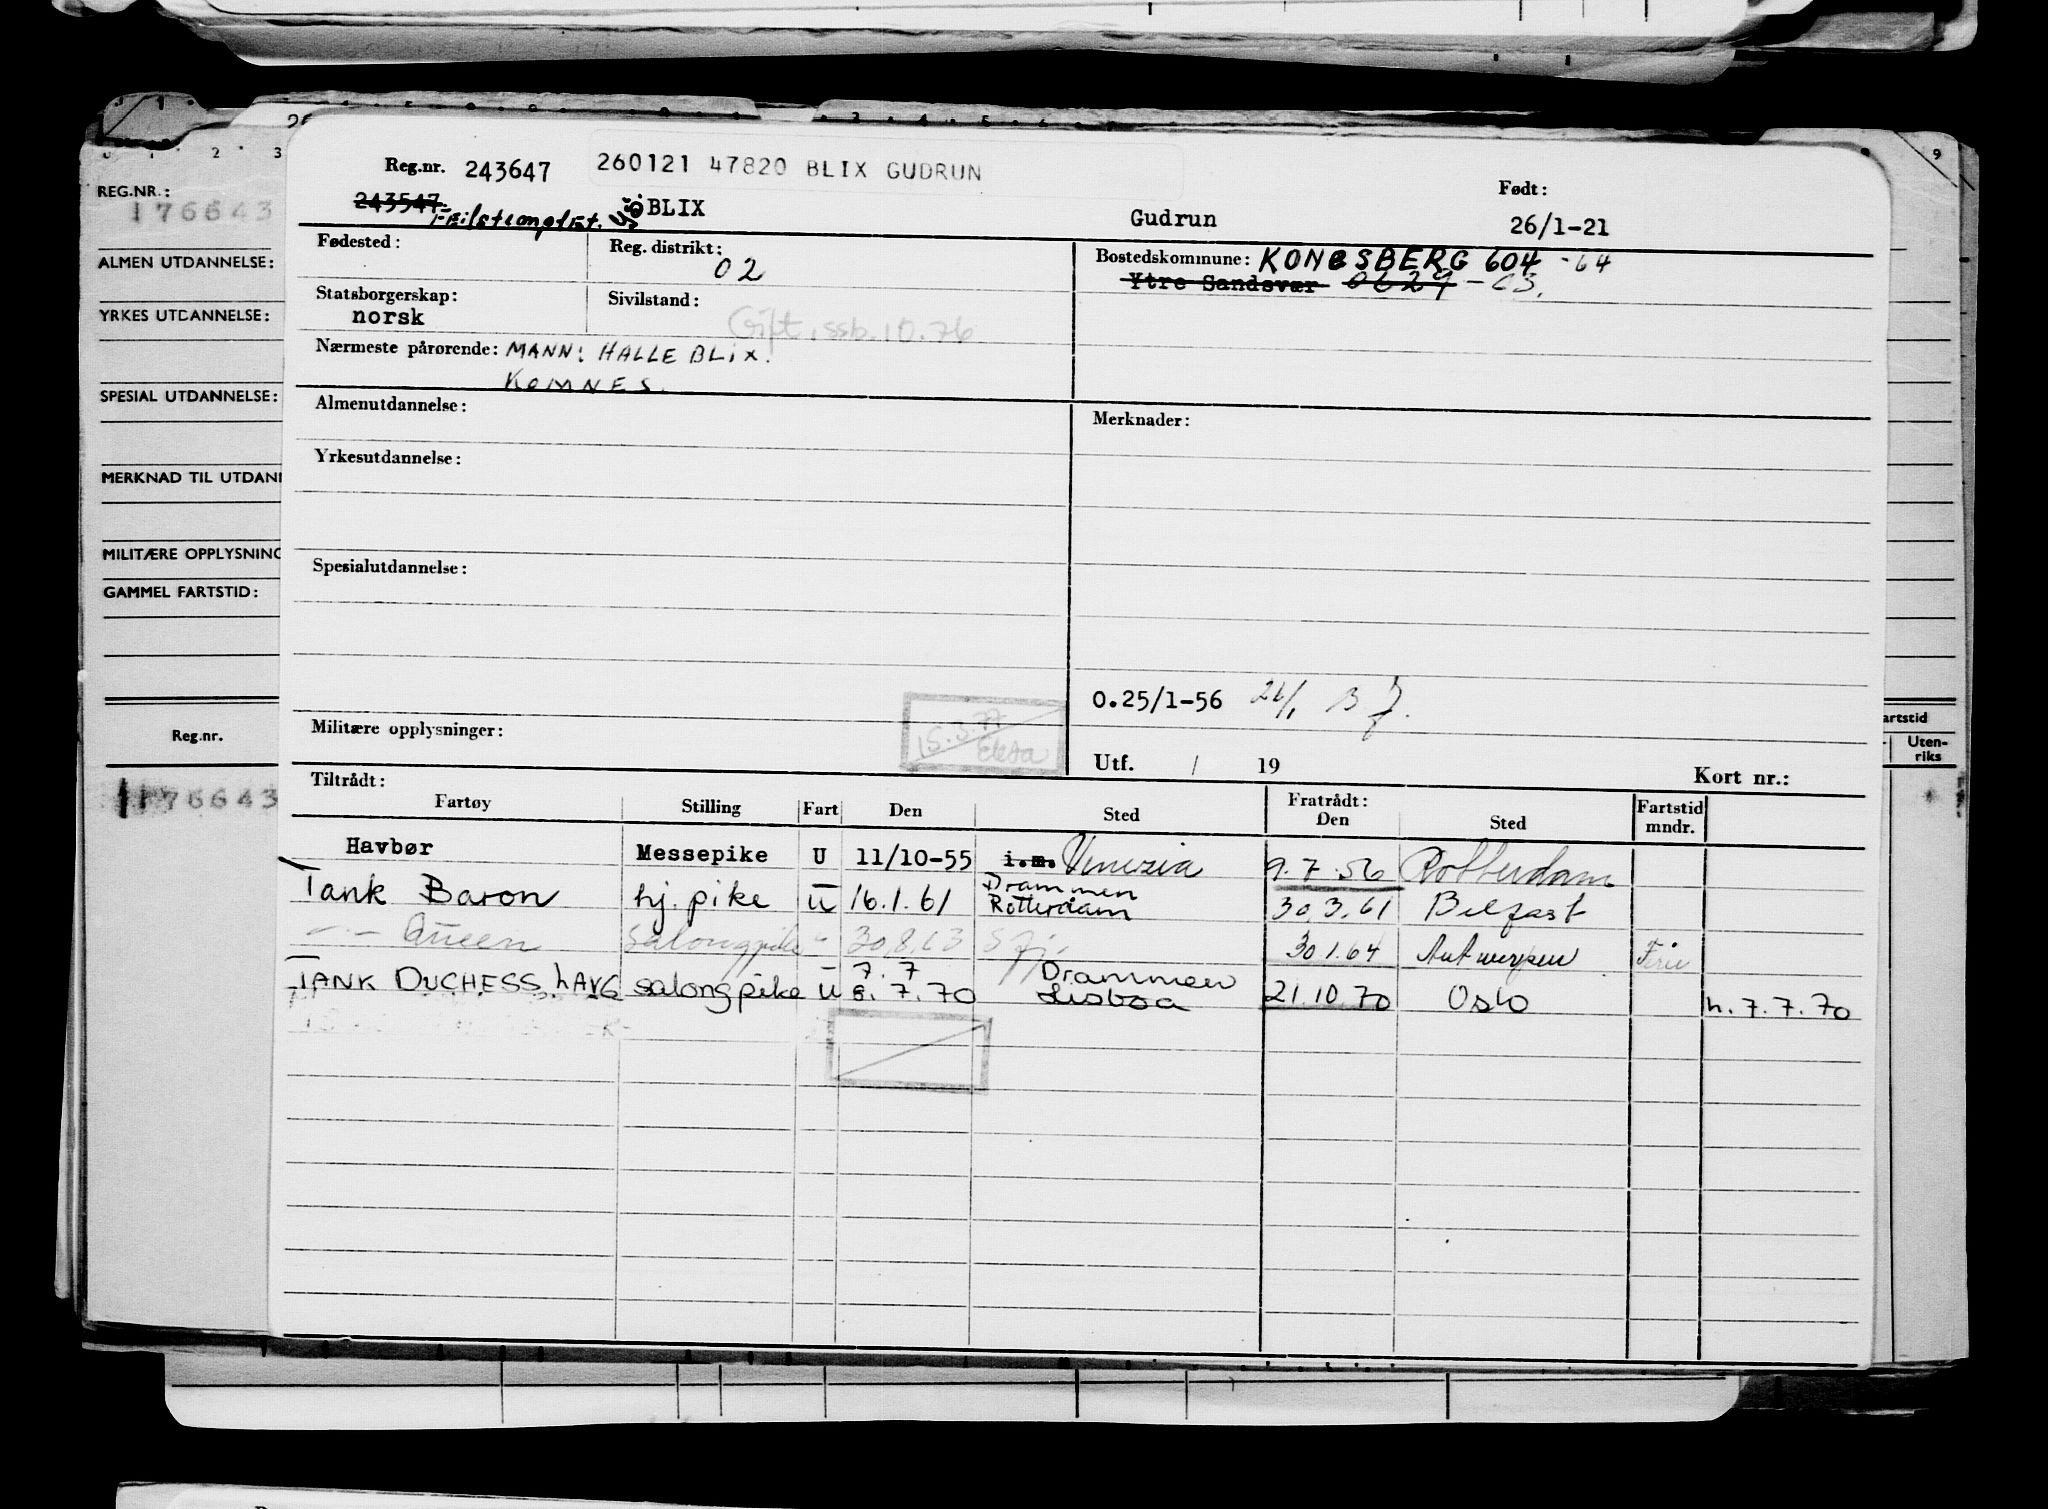 REG.NR.:
176643
ALMEN UTDANNELSE:
YRKES UTDANNELSE:
SPESIAL UTDANNELSE:
MERKNAD TIL UTDAN
MILITÆRE OPPLYSNING
GAMMEL FARTSTID:
Reg.nr.
176643
Reg.nr. 243647 260121 47820 BLIX GUDRUN
243547 Feilstemplet. BLIX Gudrun
Født:
26/1-21
Fødested: Reg. distrikt: 02
Bostedskommune: KONGSBERG 604 -64
Ytre Sandsvær 0629 -63.
Statsborgerskap: norsk
Sivilstand: Gift, ssb. 10.76
Nærmeste pårørende: MANN: HALLE BLIX.
KOMNES.
Almenutdannelse:
Merknader:
Yrkesutdannelse:
Spesialutdannelse:
O.25/1-56
Militære opplysninger:
15.3.77
Utf. / 19 Kort nr.:
Tiltrådt:
Fartøy Stilling Fart Den Sted Fratrådt: Den Sted Fartstid mndr.
Havbør Messepike U 11/10-55 i.m. Venezia 9.7.56 Rotterdam
Tank Baron hj.pike U 16.1.61 Drammen Rotterdam 30.3.61 Belfast
—"— Queen salongpike " 30.8.63 30.1.64 Antwerpen Ferie
TANK DUCHESS, LARVG salongpike U 7.7 8.7.70 Drammen Lisboa 21.10.70 Oslo h.7.7.70
artstid
Uten-
riks
9